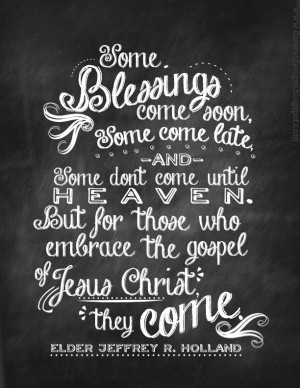 Some
Blessings
come soon,
Some come late,
-AND-
Some dont come until
HEAVEN.
But for those who
embrace the gospel
of Jesus Christ,
they come.
ELDER JEFFREY R. HOLLAND